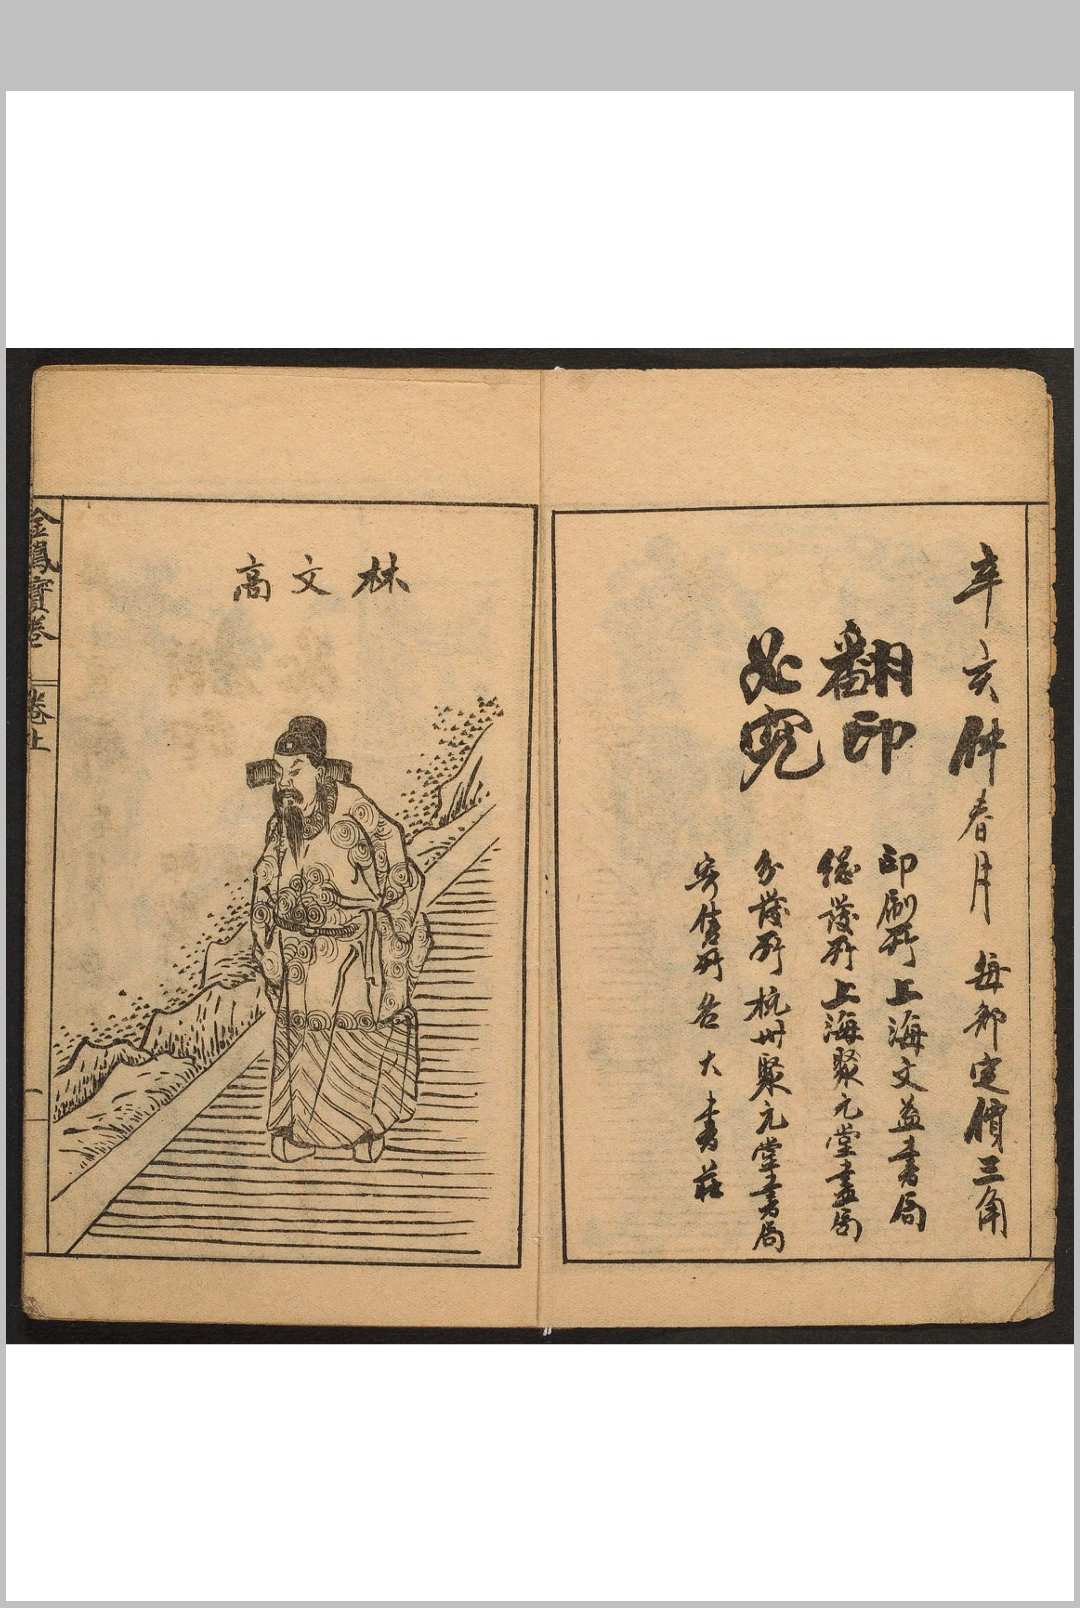 辛亥仲春月 每部定價三角
翻印
必究
印刷所上海文益書局
總發所上海聚元堂書局
分發所杭州聚元堂書局
寄售所各大書莊
林文高
金鳳寶卷 卷上
一